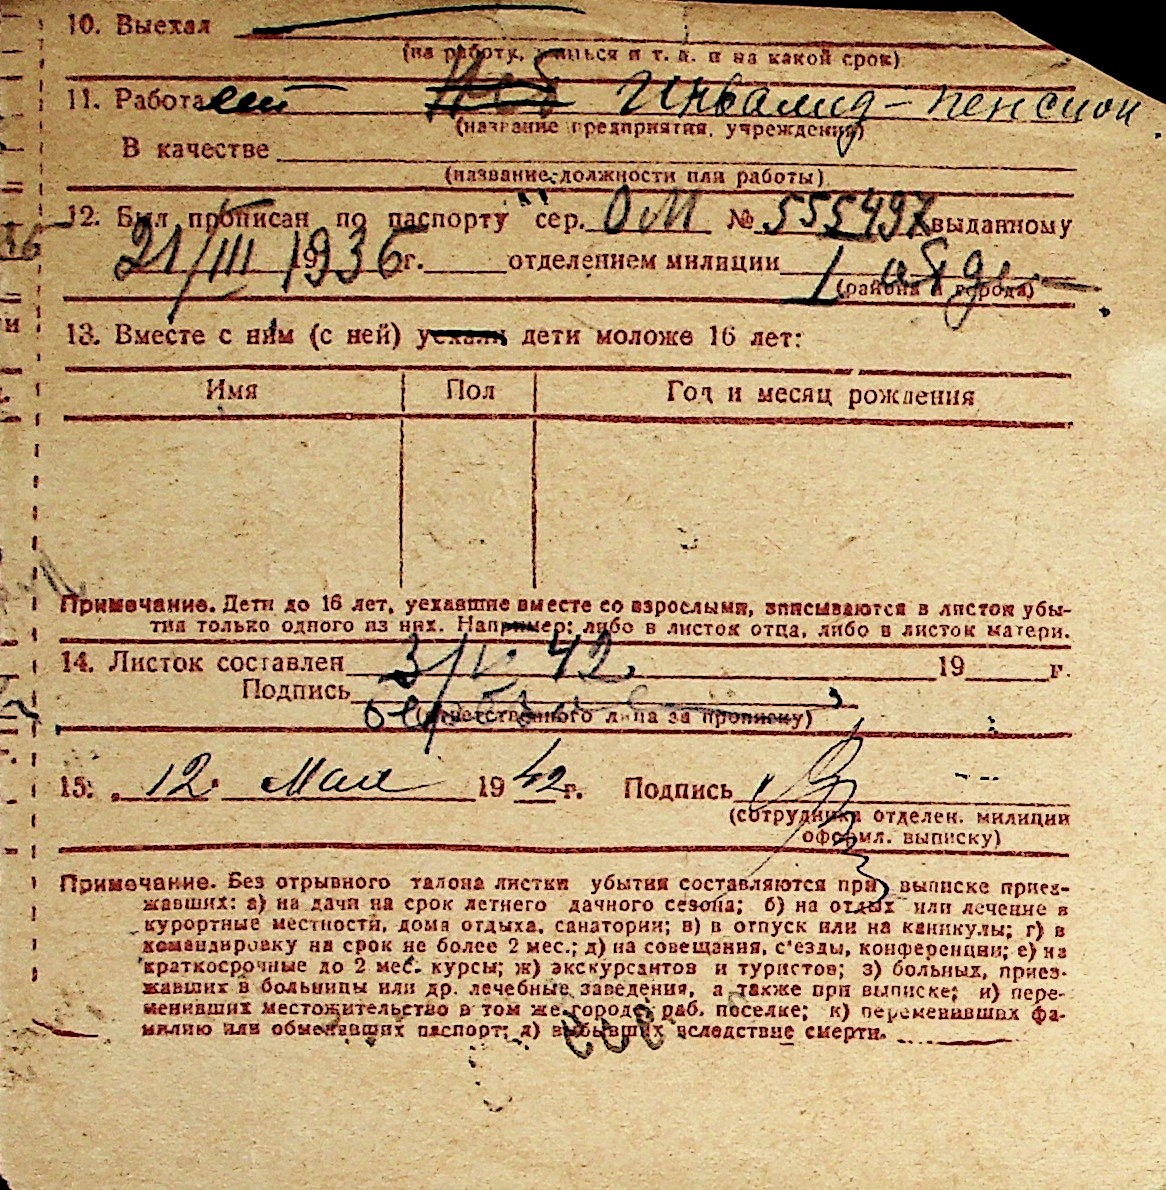 10. Выехал
(на работу, учиться и т. д. и на какой срок)
11. Работает Инвалид – пенсион.
(название предприятия, учреждения)
В качестве
(название должности или работы)
12. Был прописан по паспорту сер. ОМ № 555497 выданному
21/III 1936 г. отделением милиции
(района и города)
13. Вместе с ним (с ней) уехали дети моложе 16 лет:
Имя Пол Год и месяц рождения
Примечание. Дети до 16 лет, уехавшие вместе со взрослыми, вписываются в листок убы-
тия только одного из них. Например: либо в листок отца, либо в листок матери.
14. Листок составлен 3/V 42 19 г.
Подпись
(ответственного лица за прописку)
15. 12 Мая 1942 г. Подпись
(сотрудника отделен. милиции
оформл. выписку)
Примечание. Без отрывного талона листки убытия составляются при выписке приез-
жавших: а) на дачи на срок летнего дачного сезона; б) на отдых или лечение в
курортные местности, дома отдыха, санатории; в) в отпуск или на каникулы; г) в
командировку на срок не более 2 мес.; д) на совещания, с'езды, конференции; е) на
краткосрочные до 2 мес. курсы; ж) экскурсантов и туристов; з) больных, приез-
жавших в больницы или др. лечебные заведения, а также при выписке; и) пере-
менивших местожительство в том же городе раб. поселке; к) переменивших фа-
милию или обменявших паспорт; л) выбывших вследствие смерти.